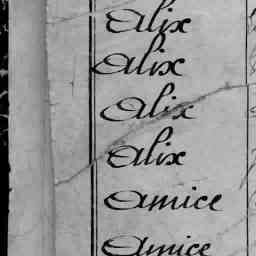 Alix
Alix
Alix
Alix
Amice
Amice